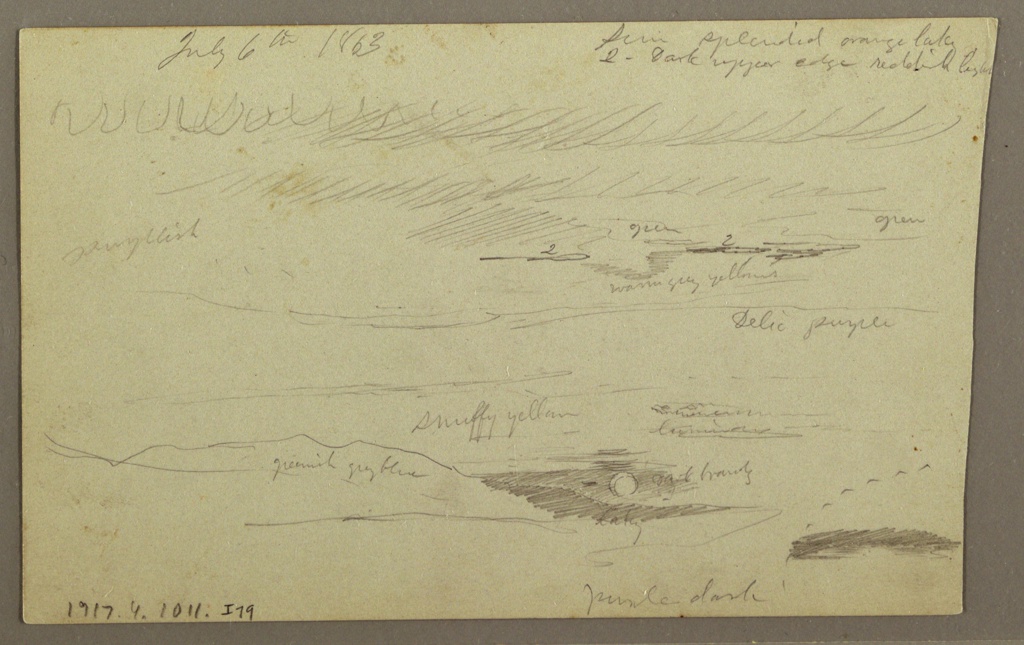 July 6th 1863
Sun splendid orange lake
2 - Dark upper edge reddish light
green
green
purplish
2
2
warm grey yellows
Delic purple
snuffy yellow
luminous
greenish grey blue
lake
purple dark
1917.4.1011. I79